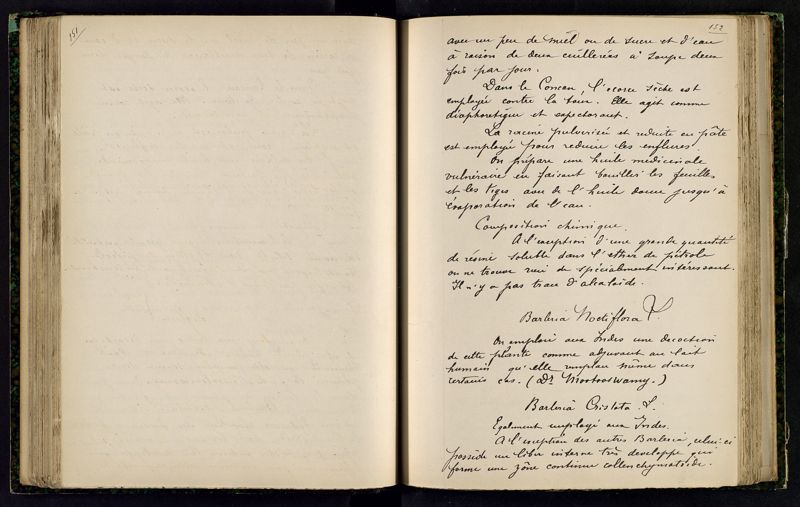 151
152
avec un peu de miel ou de sucre et d'eau
à raison de deux cuillerées à soupe deux
fois par jour.
Dans le Concan, l'écorce sèche est
employée contre la toux. Elle agit comme
diaphorétique et expectorant.
La racine pulvérisée et réduite en pâte
est employée pour réduire les enflures.
On prépare une huile médicinale
vulnéraire en faisant bouillir les feuilles
et les tiges avec de l'huile douce jusqu'à
évaporation de l'eau.
Composition chimique.
A l'exception d'une grande quantité
de résine soluble dans l'éther de pétrole
on ne trouve rien de spécialement intéressant.
Il n'y a pas trace d'alcaloïde.
Barleria Noctiflora L.
On emploie aux Indes une décoction
de cette plante comme adjuvant au lait
humain qu'elle remplace même dans
certains cas. (Dr Mootooswamy.)
Barleria Cristata. L.
Egalement employé aux Indes.
A l'exception des autres Barleria, celui-ci
possède un liber interne très développé qui
forme une zône continue collenchymatoïde.